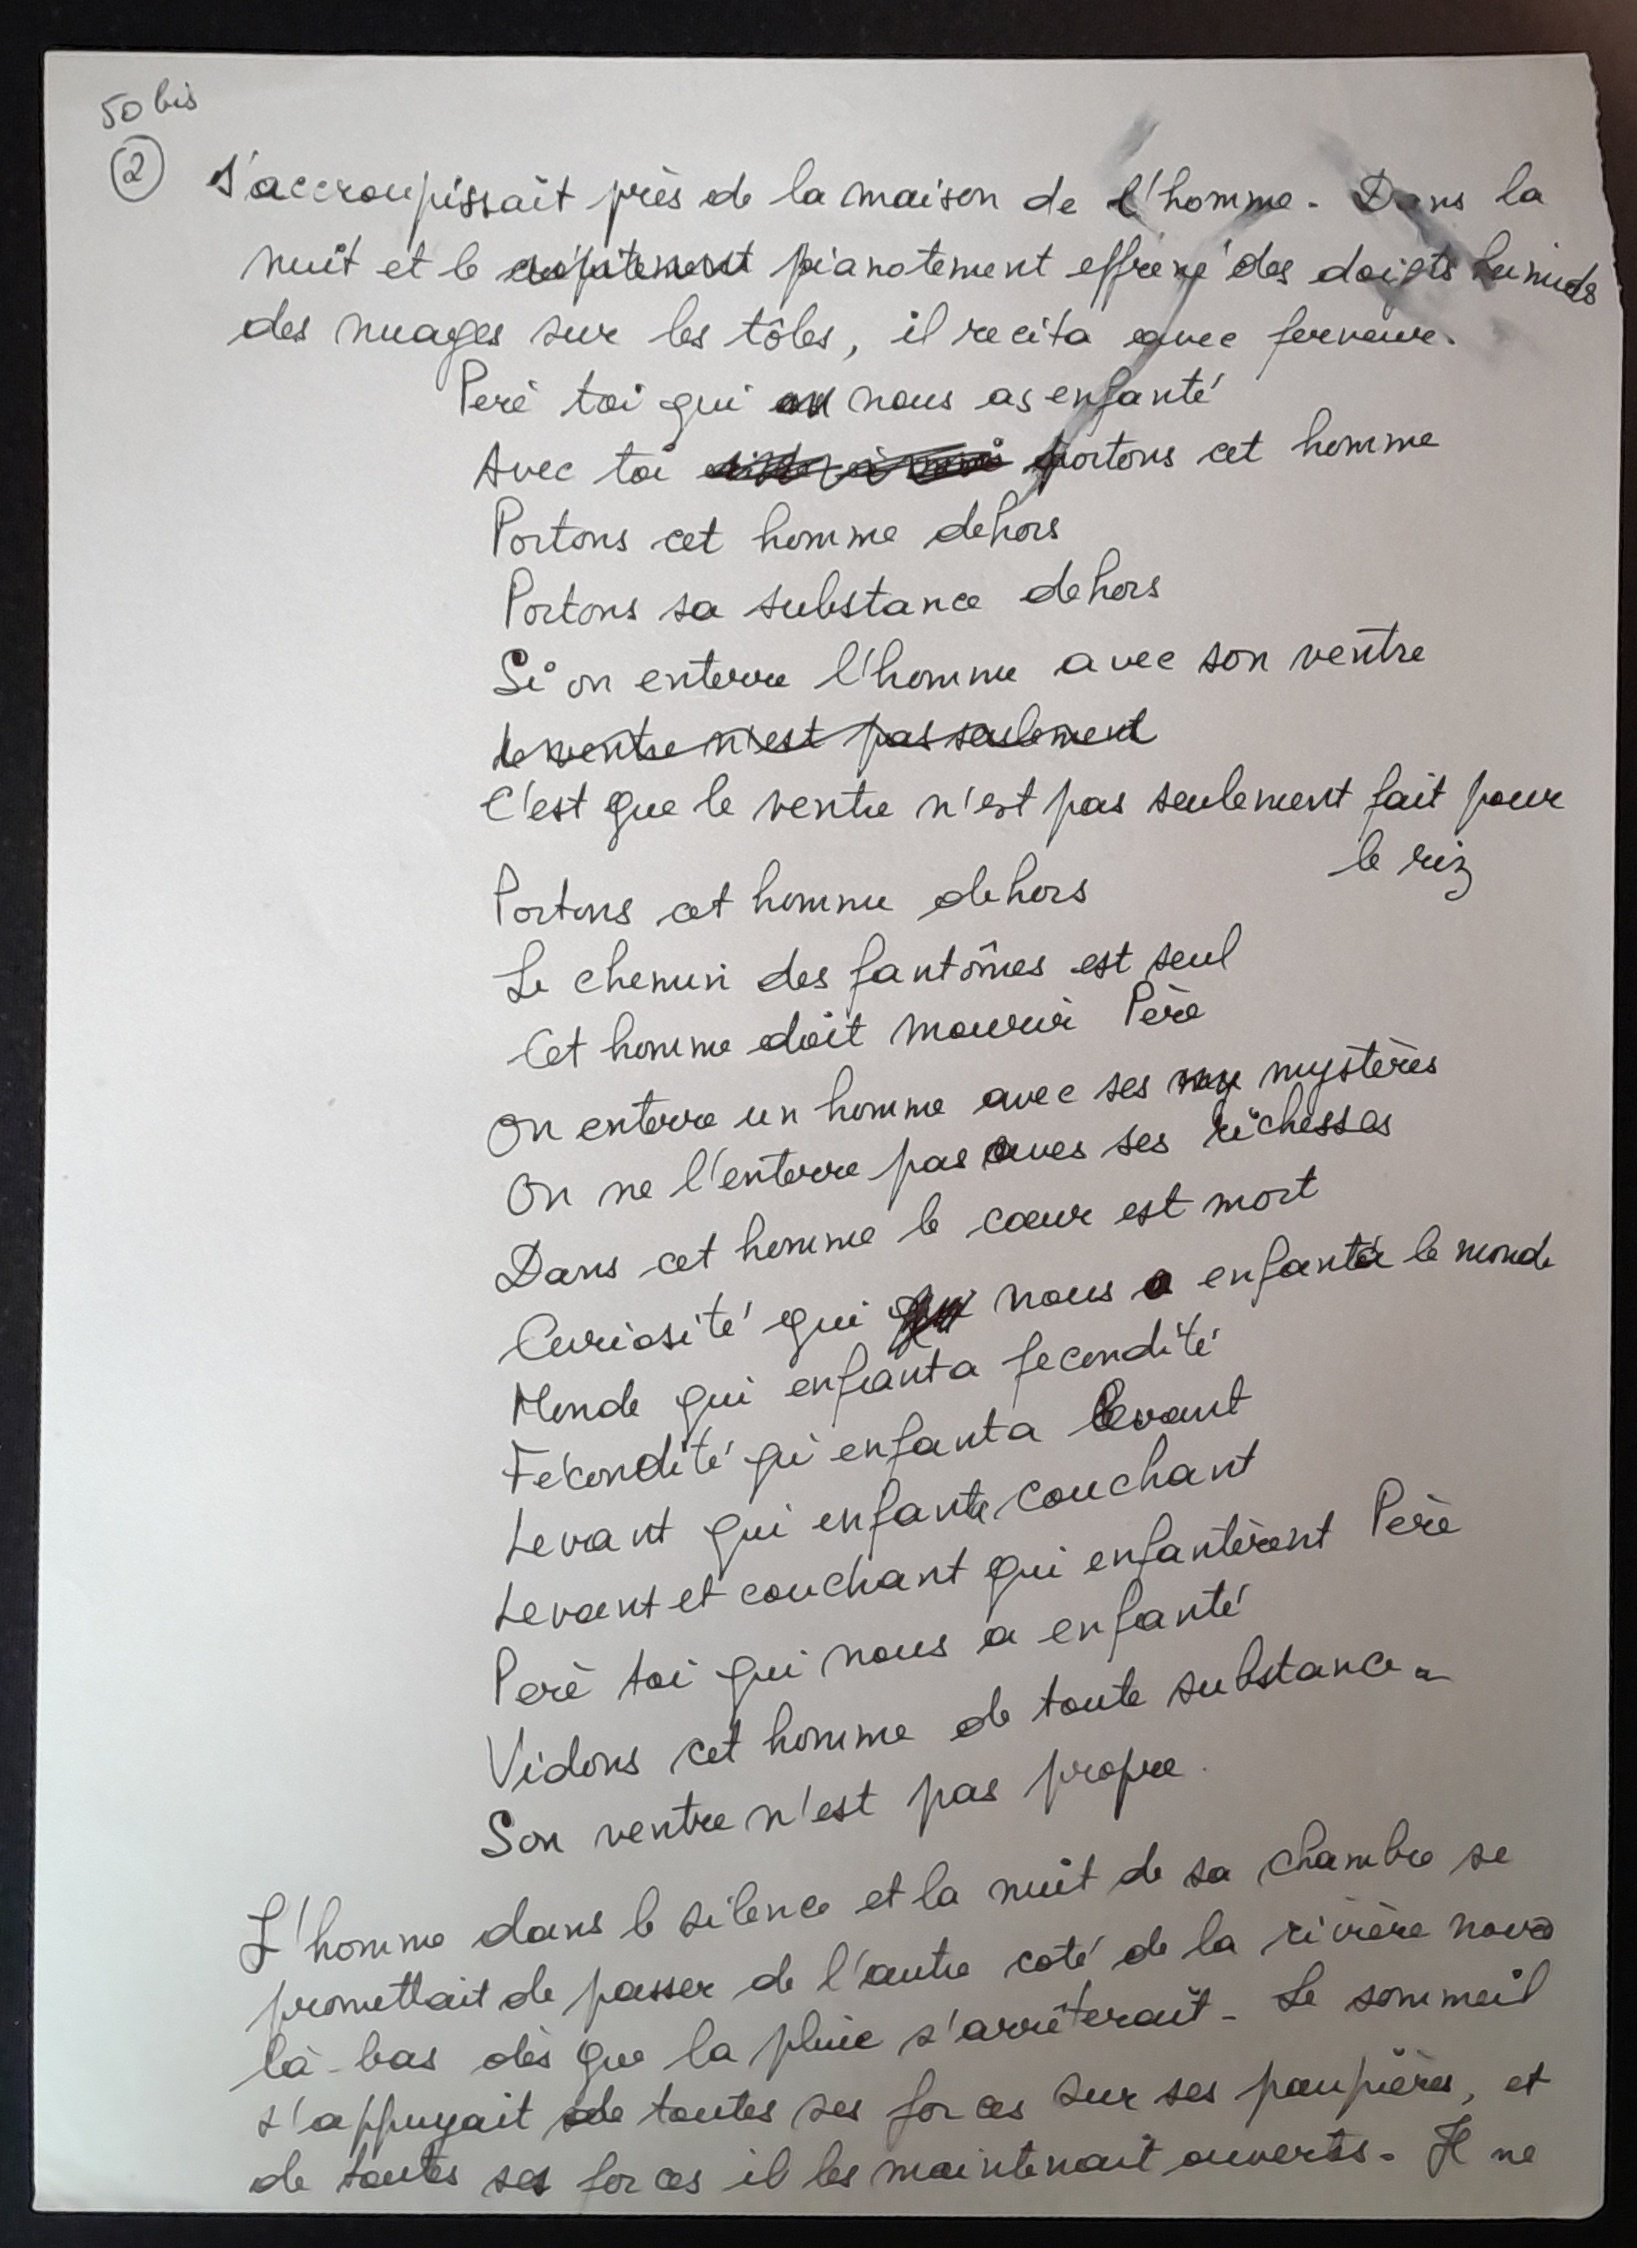 50 bis
②
s'accroupissait près de la maison de l'homme. Dans la
nuit et le crépitement pianotement effréné des doigts humides
des nuages sur les tôles, il recita avec ferveur.
Perè toi qui nous as enfanté
Avec toi portons cet homme
Portons cet homme dehors
Portons sa substance dehors
Si on enterre l'homme avec son ventre
le ventre n'est pas seulement
C'est que le ventre n'est pas seulement fait pour
le riz
Portons cet homme dehors
Le chemin des fantômes est seul
Cet homme doit mourir Père
On enterre un homme avec ses my mystères
On ne l'enterre pas avec ses richesses
Dans cet homme le cœur est mort
Curiosité qui nous a enfanta le monde
Monde qui enfanta fecondité
Fécondité qui enfanta levant
Levant qui enfanta couchant
Levant et couchant qui enfantèrent Père
Perè toi qui nous a enfanté
Vidons cet homme de toute substance.
Son ventre n'est pas propre.
L'homme dans le silence et la nuit de sa chambre se
promettait de passer de l'autre coté de la rivière noire
là-bas dès que la pluie s'arrêterait. Le sommeil
s'appuyait de toutes ses forces sur ses paupières, et
de toutes ses forces il les maintenait ouverts. Il ne